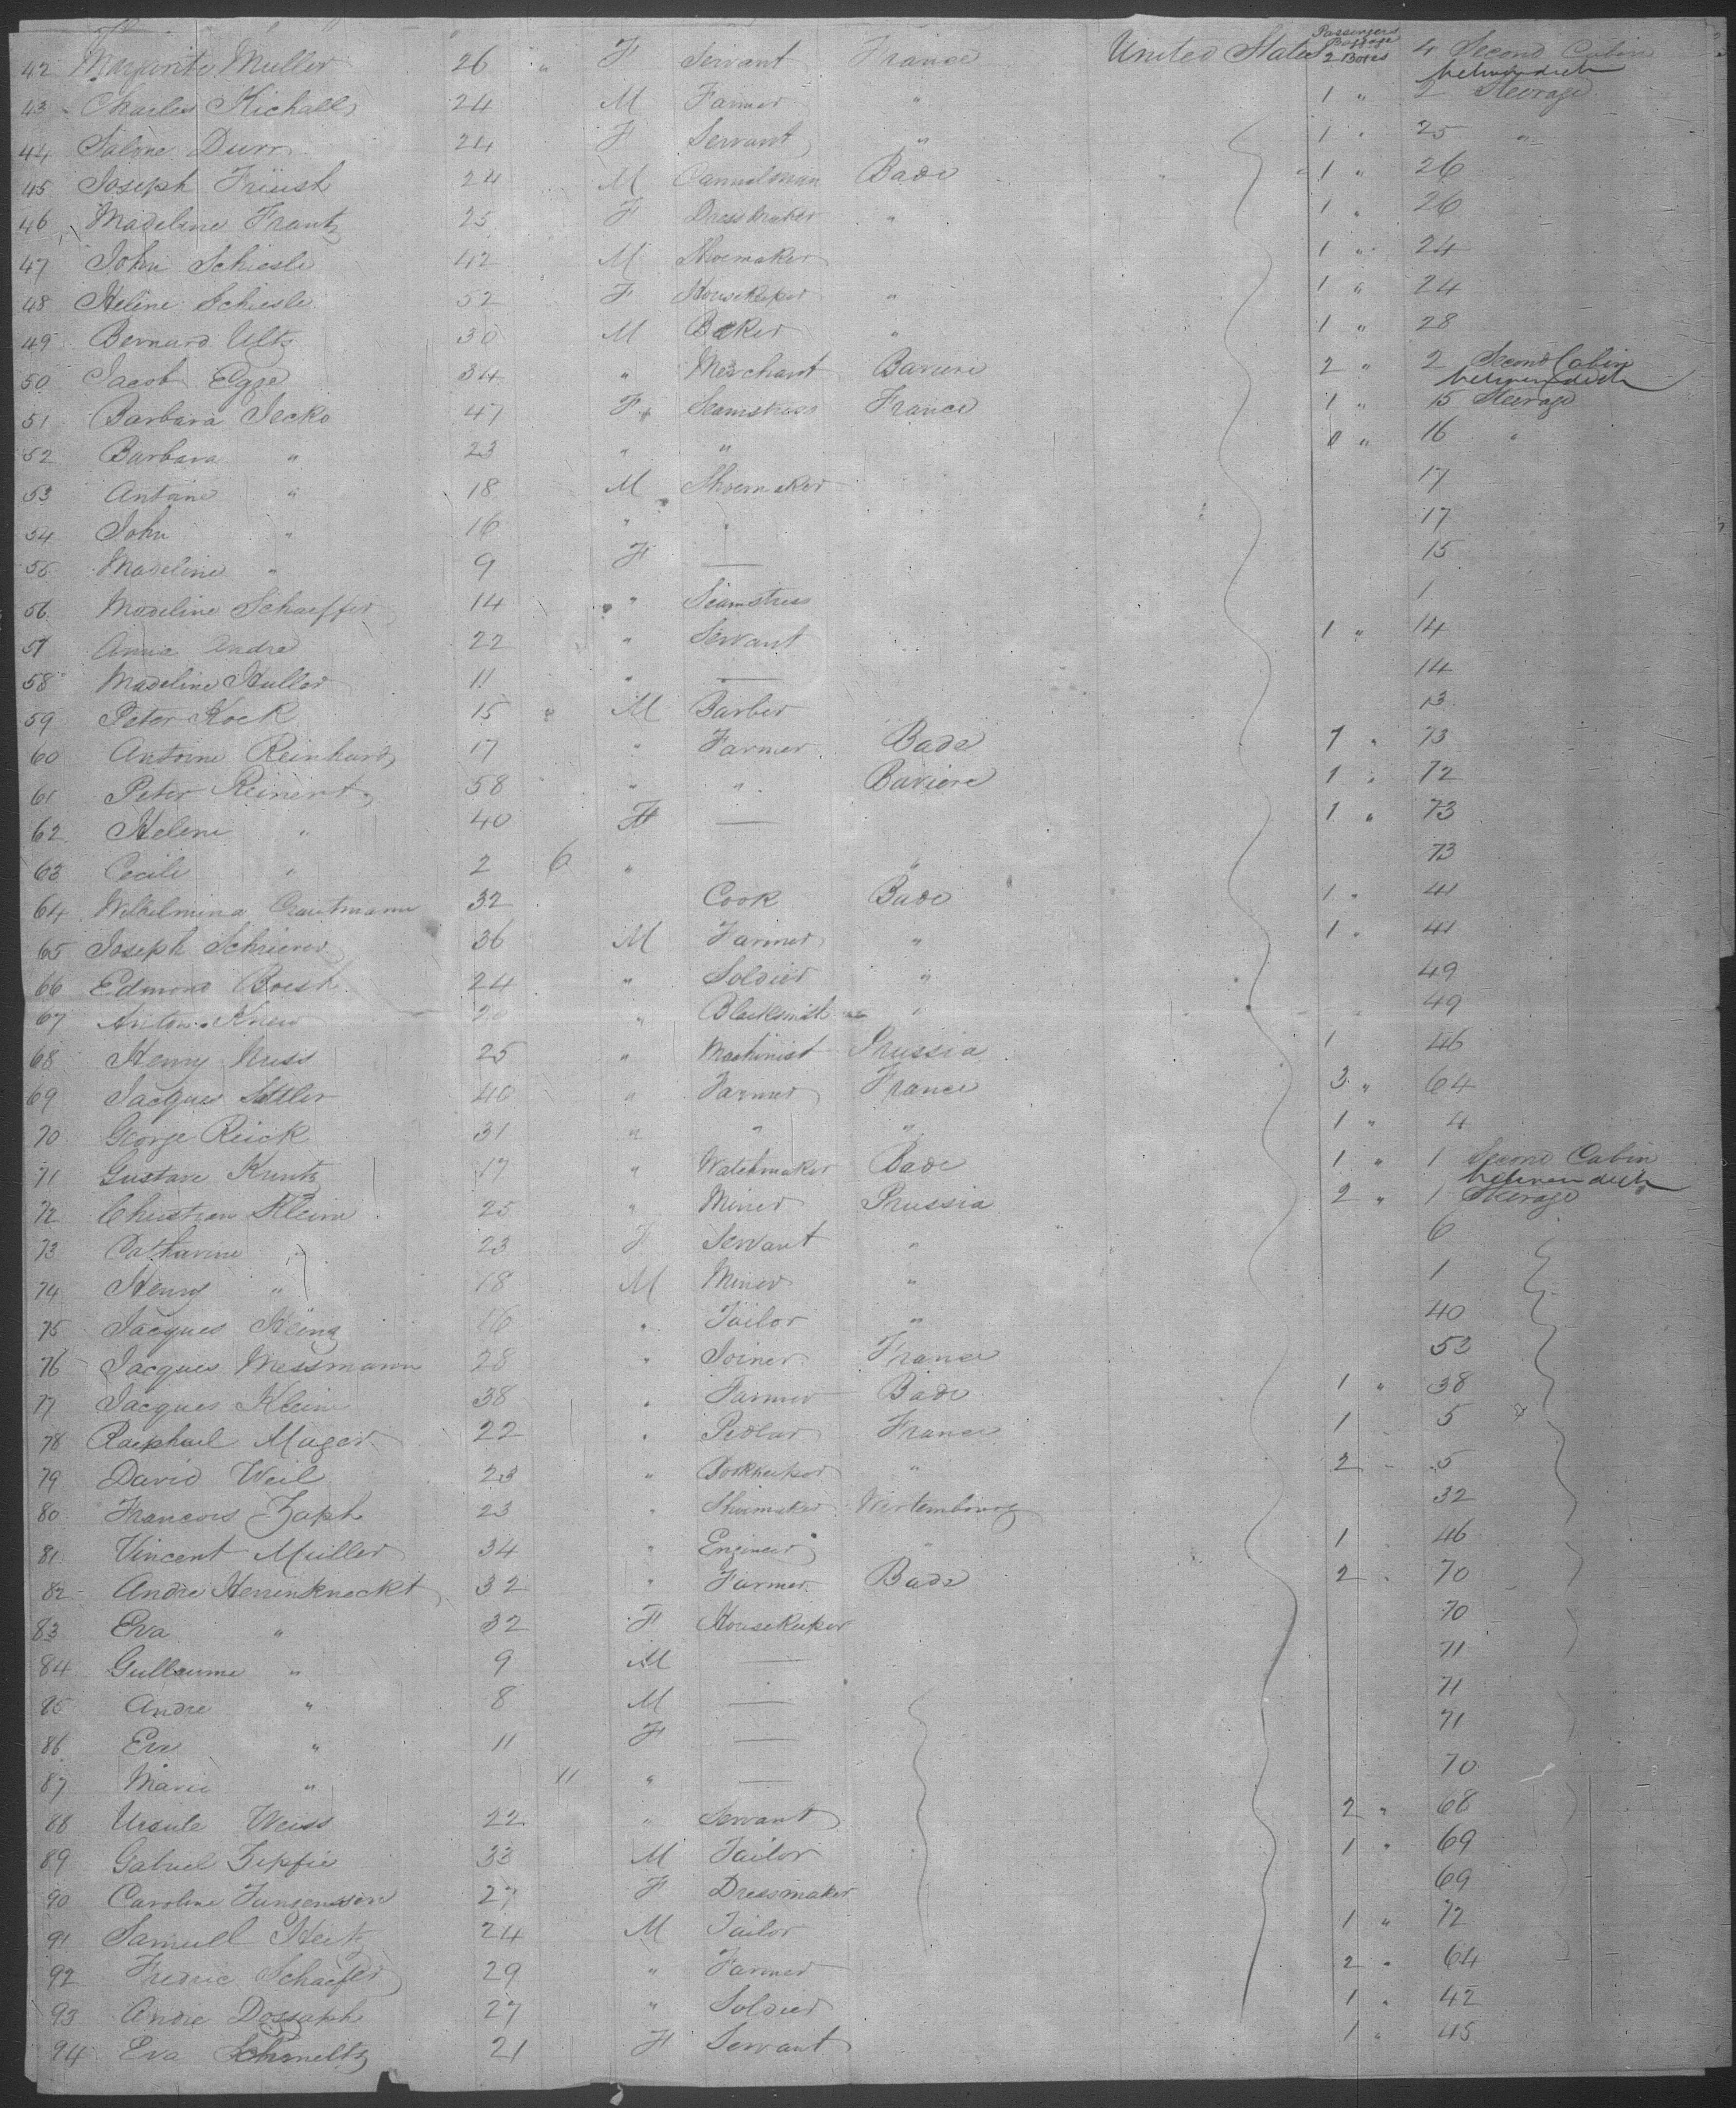 Passengers
Baggage
42 Margarite Muller 26 " F Servant France United States 2 Boxes 4 Second Cabin
between deck
43 Charles Kichall 24 M Farmer " 1 " 2 Steerage
44 Salone Durr 24 F Servant " 1 " 25 "
45 Joseph Früsh 24 M Bade 1 " 26
46 Madeline Frantz 25 F Dressmaker " 1 " 26
47 John Schiesle 42 M Shoemaker 1 " 24
48 Helene Schiesle 52 F Housekeeper " 1 " 24
49 Bernard Ultz 30 M Baker " 1 " 28
50 Jacob Egge 34 " Merchant Baviere 2 " 2 Second Cabin
between deck
51 Barbara Jecko 47 F Seamstress France 1 " 15 Steerage
52 Barbara " 23 " " 0 " 16 "
53 Antoine " 18 M Shoemaker 17
54 John " 16 " " 17
55 Madeline " 9 F — 15
56 Madeline Schaeffer 14 " Seamstress 1
57 Anna Andre 22 " Servant 1 " 14
58 Madeline Huller 11 " — 14
59 Peter Kock 15 " M Barber 13
60 Antoine Reinhard 17 " Farmer Bade 1 " 73
61 Peter Reinert 58 " " Baviere 1 " 72
62 Helene " 40 F — 1 " 73
63 Cecile " 2 6 " " 73
64 Wilhelmina Trautmann 32 Cook Bade 1 " 41
65 Joseph Schrierer 36 M Farmer " 1 " 41
66 Edmond Boesh 24 " Soldier " 49
67 Anton Knew 20 " Blacksmith " 49
68 Henry Huss 25 " Machinist Prussia 1 46
69 Jacques Sattler 40 " Farmer France 3 " 64
70 George Reick 31 " " " 1 " 4
71 Gustave Kuntz 17 " Watchmaker Bade 1 " 1 Second Cabin
between deck
72 Christian Klein 25 " Miner Prussia 2 " 1 Steerage
73 Catharine " 23 F Servant " 6
74 Henry " 18 M Miner " 1
75 Jacques Heinz 16 " Tailor " 40
76 Jacques Messmann 28 " Joiner France 53
77 Jacques Klein 38 " Farmer Bade 1 " 38
78 Raephael Mager 22 " Pedlar France 1 5
79 David Weil 23 " Bookkeeper " 2 " 5
80 Francois Zaph 23 " Shoemaker Wurtembourg 32
81 Vincent Muller 34 " Engineer " 1 46
82 Andre Herrenkneckt 32 " Farmer Bade 2 " 70
83 Eva " 32 F Housekeeper 70
84 Gullaume " 9 M — 71
85 Andre " 8 M — 71
86 Eva " 11 F — 71
87 Marie " 11 " — 70
88 Ursule Weiss 22 " Servant 2 " 68
89 Gabriel Zepfie 33 M Tailor 1 " 69
90 Caroline 27 F Dressmaker 69
91 Samuell Heitz 24 M Tailor 1 " 72
92 Fredric Schaefer 29 " Farmer 2 " 64
93 Andre Dossaph 27 " Soldier 1 " 42
94 Eva Schmeltz 21 F Servant 1 " 45